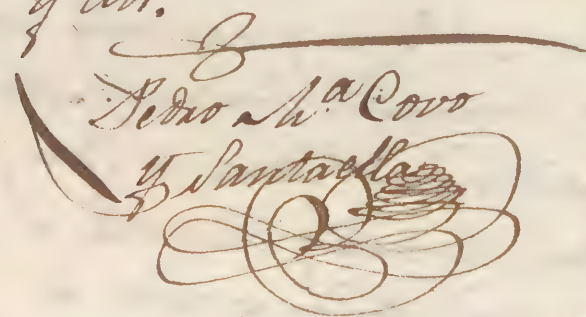 Pedro M.ª Covo
y Santaella